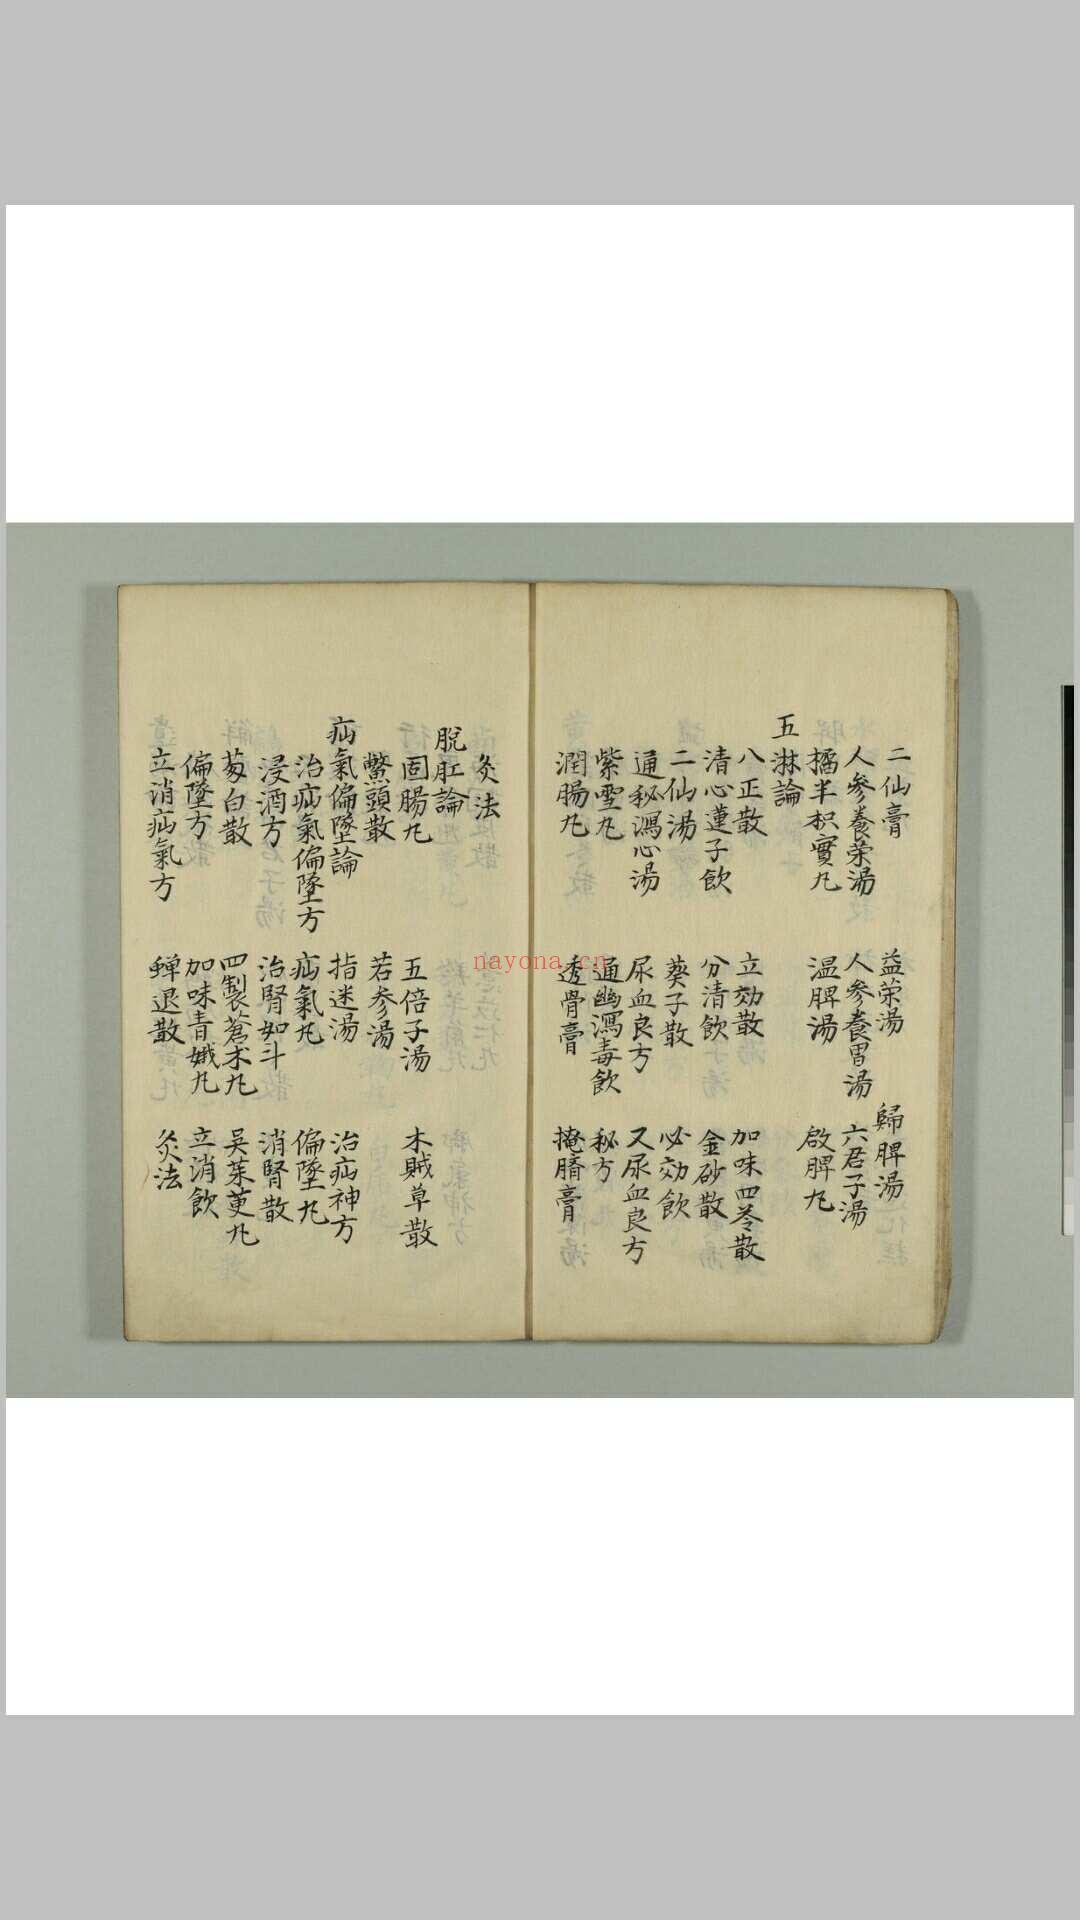 二仙膏　益荣湯　歸脾湯
人参養荣湯　人参養胃湯　六君子湯
橘半枳實丸　温脾湯　啟脾丸
五淋論
八正散　立効散　加味四苓散
清心蓮子飲　分清飲　金砂散
二仙湯　葵子散　必効飲
通秘瀉心湯　尿血良方　又尿血良方
紫雪丸　通幽瀉毒飲　秘方
潤腸丸　透骨膏　掩臍膏
灸法
脫肛論
固腸丸　五倍子湯　木賊草散
鱉頭散　若参湯
疝氣偏墜論　指迷湯　治疝神方
治疝氣偏墜方　疝氣丸　偏墜丸
浸酒方　治腎如斗　消腎散
蒭白散　四製蒼术丸　吳茱萸丸
偏墜方　加味青娥丸　立消飲
立消疝氣方　蟬退散　灸法
nayona.cn